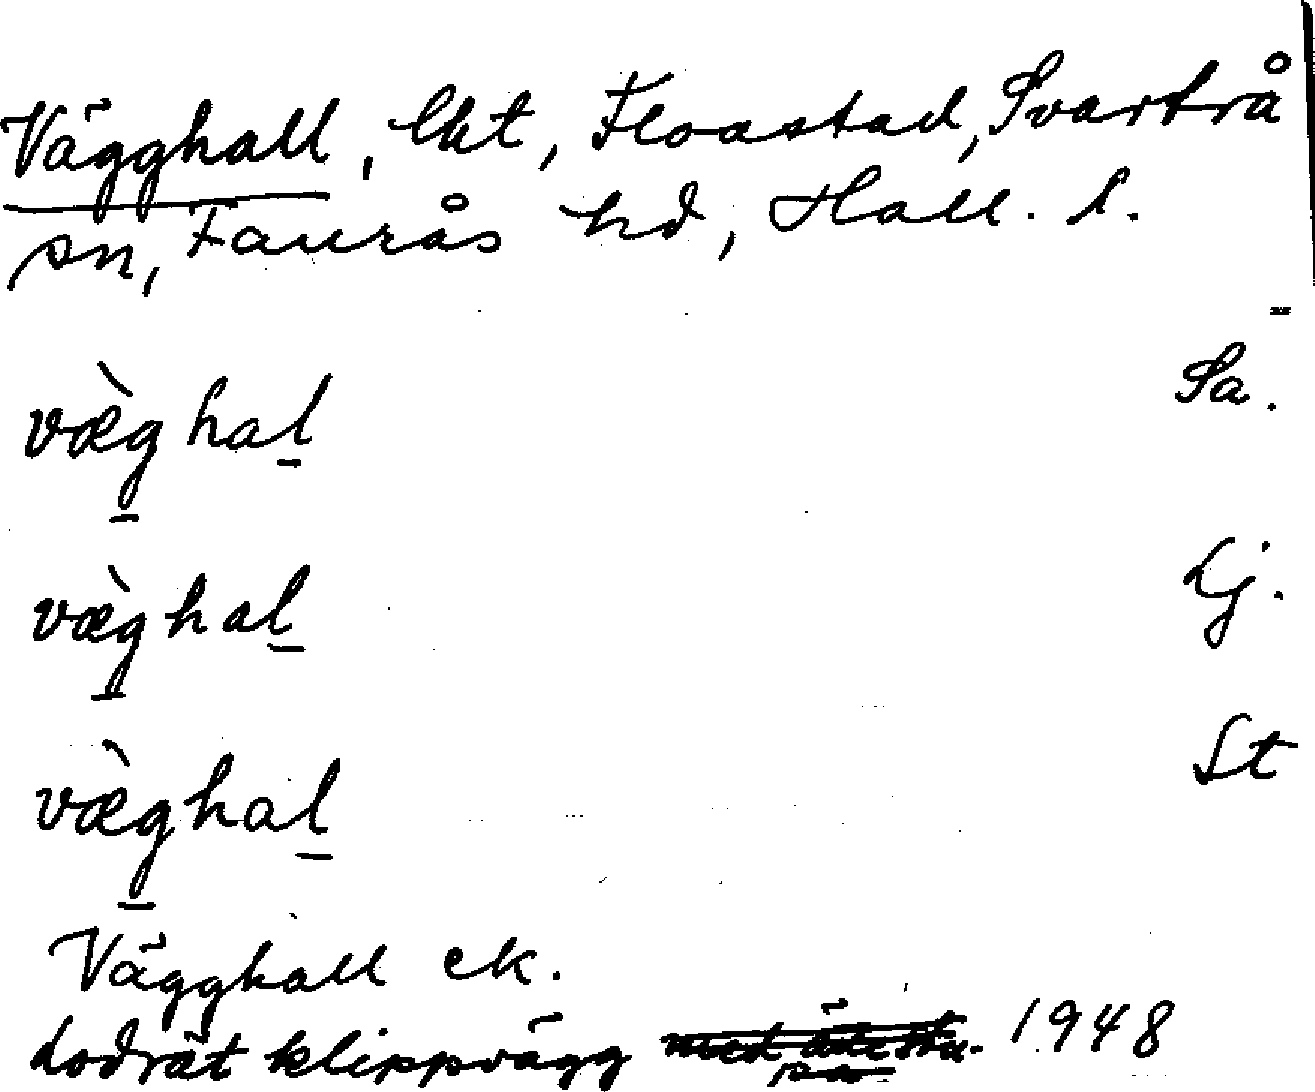 Vägghall, lht, Floastad, Svartrå
sn, Faurås hd, Hall. l.
væ̀g hal Sa.
væ̀g hal Lj.
væ̀g hal St
Vägghall ek.
Lodrät klippvägg 1948